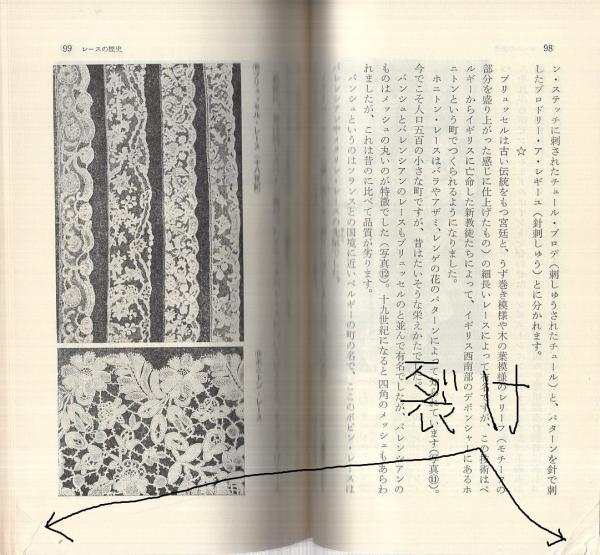 98
ン・ステッチに刺されたチュール・ブロデ(刺しゅうされたチュール)と、パターンを針で刺
したブロドリー・ア・レギーユ(針刺しゅう)とに分かれます。
☆
ブリュッセルは古い伝統をもつ宮廷と、うず巻き模様や木の葉模様のレリーフ(モチーフの
部分を盛り上がった感じに仕上げたもの)の細長いレースによって有名ですが、この技術はベ
ルギーからイギリスに亡命した新教徒たちによって、イギリス西南部のデボンシャーにあるホ
ニトンという町でつくられるようになりました。
ホニトン・レースはバラやアザミ、レンゲの花のパターンによって知られています(写真⑪)。
今でこそ人口五百の小さな町ですが、昔はたいそうな栄えかたでした。
バンシュとバレンシアンのレースもブリュッセルのと並んで有名でしたが、バレンシアンの
ものはメッシュの丸いのが特徴でした(写真⑫)。十九世紀になると四角のメッシュもあらわ
れましたが、これは昔のに比べて品質が劣ります。
バンシュというのはフランスとの国境に近いベルギーの町の名で、ここのボビン・レースは
99 レースの歴史
ブリュッセル・レース 十八世紀
ホニートン・レース
裂け